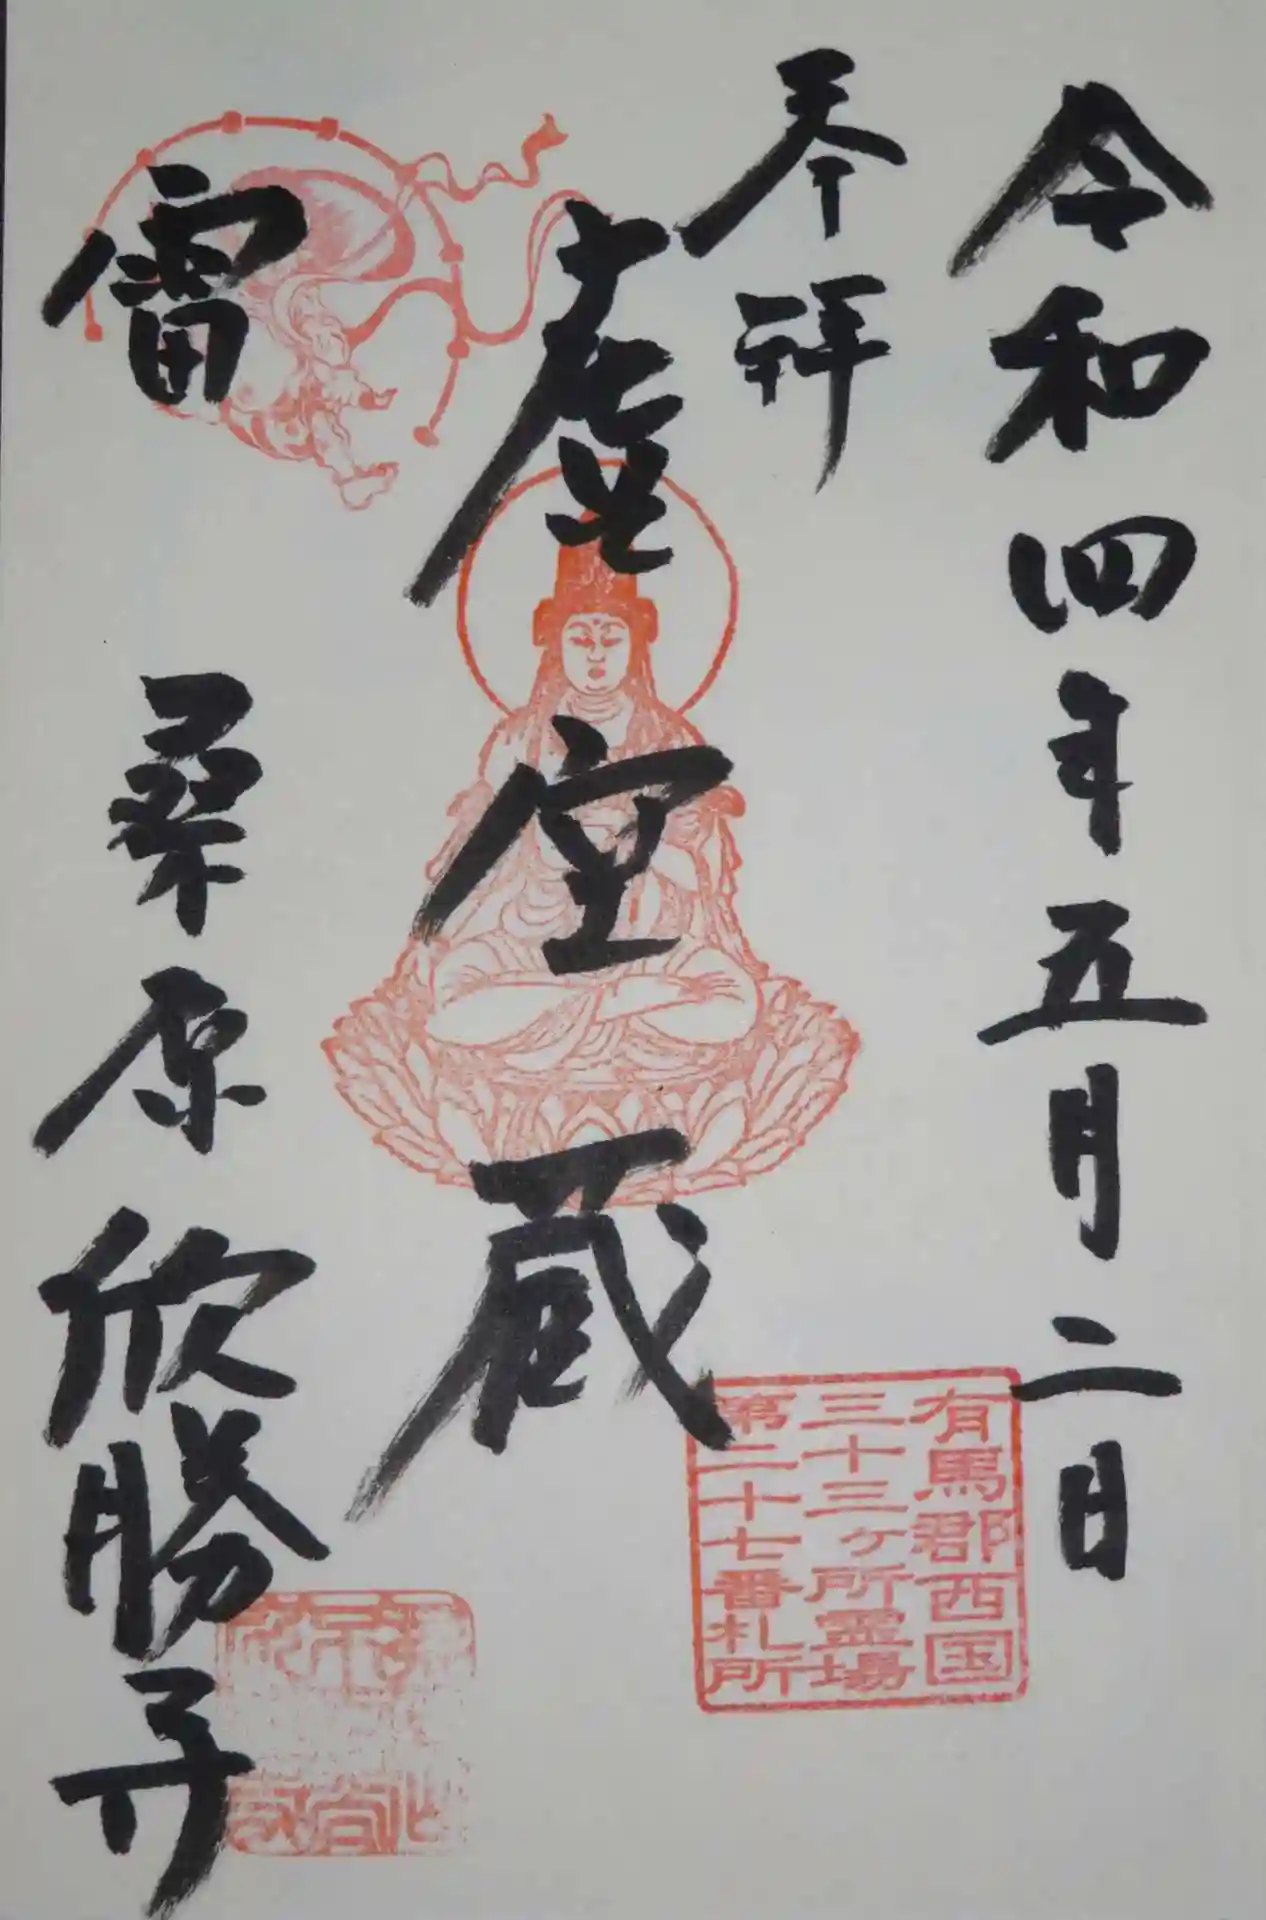 令和四年五月二日
奉拝
虚空蔵
雷 桑原 欣勝寺
有馬郡西国
三十三ヶ所霊場
第二十七番札所